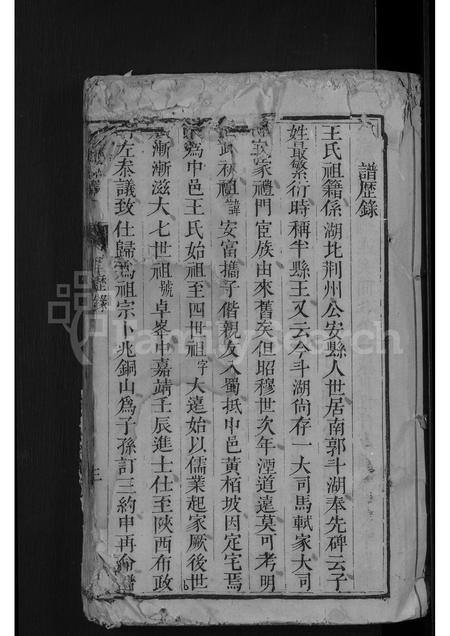 譜歴錄
王氏祖籍係湖北荆州公安縣人世居南郭斗湖奉先碑云子
姓最繁衍時稱半縣王又云今斗湖尚存一大司馬軾家大司
家禮門宦族由來舊矣但昭穆世次年湮道遠莫可考明
初祖諱安富攜子偕親友入蜀抵中邑黃栢坡因定宅焉
為中邑王氏始祖至四世祖字大遠始以儒業起家厥後世
漸漸滋大七世祖號卓峯中嘉靖壬辰進士仕至陝西布政
左叅議致仕歸爲祖宗卜兆銅山爲子孫訂三約申再
歴錄
三
familysearch